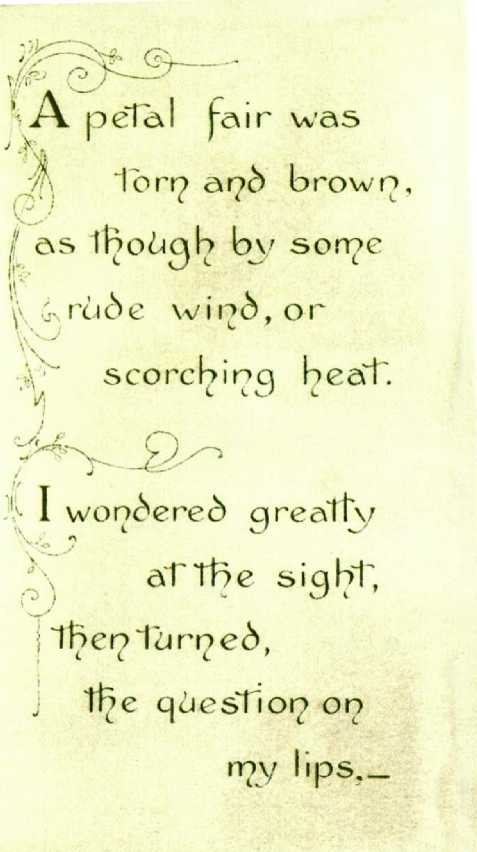 A petal fair was
torn and brown,
as though by some
rude wind, or
scorching heat.
I wondered greatly
at the sight,
then turned,
the question on
my lips,—